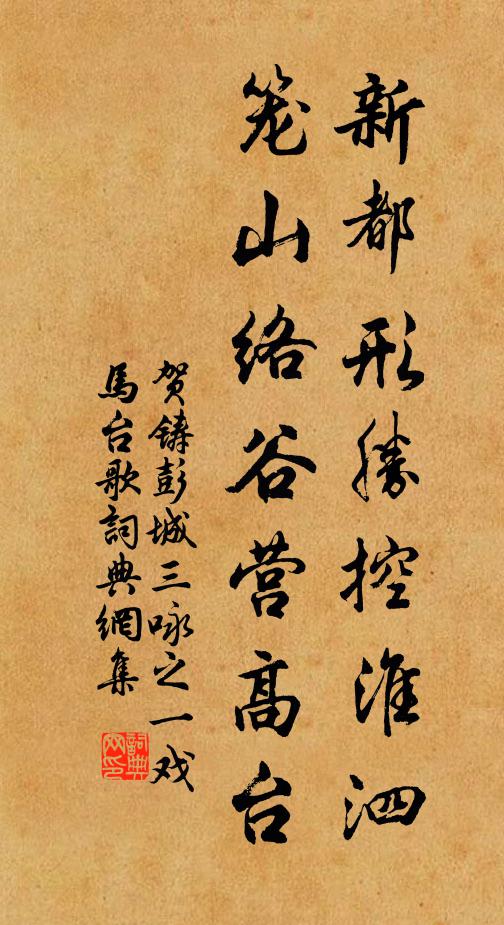 新都形勝控淮泗
笼山络谷营高台
贺铸彭城三咏之一戏
馬台歌詞典網集
詞典网印